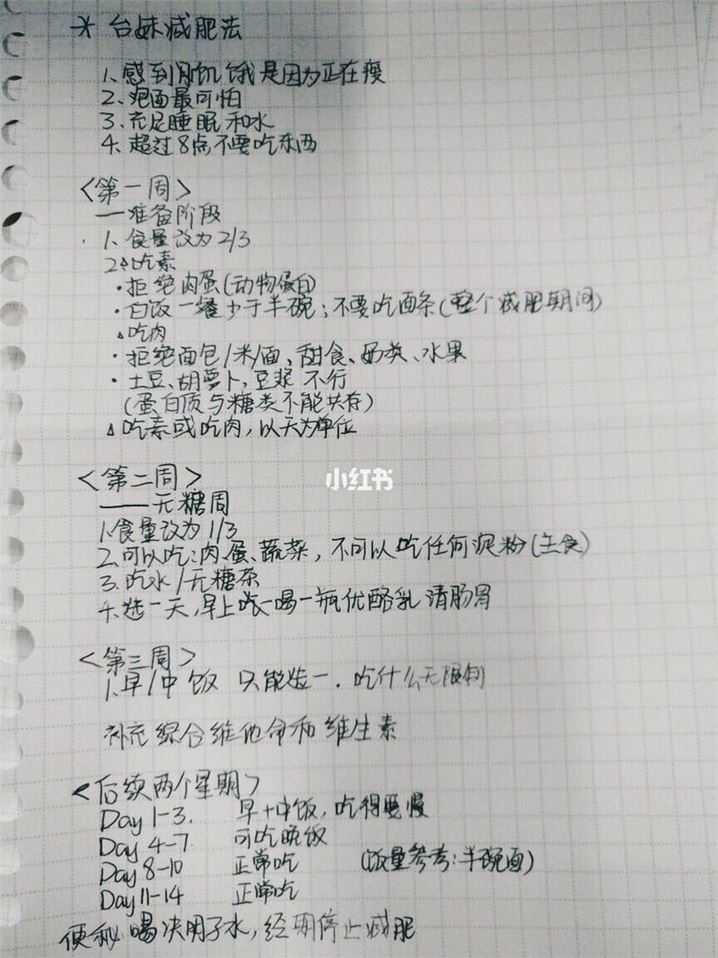 * 台妹减肥法
1. 感到肚饥饿是因为正在瘦
2. 泡面最可怕
3. 充足睡眠和水
4. 超过8点不要吃东西
<第一周>
—准备阶段
1. 食量改为2/3
2△吃素
·拒绝肉蛋(动物蛋白)
·白饭一餐少于半碗;不要吃面条(整个减肥期间)
△吃肉
·拒绝面包/米/面、甜食、奶类、水果
·土豆、胡萝卜,豆浆不行
(蛋白质与糖类不能共存)
△吃素或吃肉,以天为单位
小红书
<第二周>
——无糖周
1.食量改为1/3
2.可以吃:肉、蛋、蔬菜,不可以吃任何泥粉(主食)
3.吃水/无糖茶
4.选一天,早上吃一喝一瓶优酪乳清肠胃
<第三周>
1.早/中饭 只能选一.吃什么无限制
补充综合维他命和维生素
<后续两个星期>
Day 1-3. 早+中饭,吃得要慢
Day 4-7. 可吃晚饭
Day 8-10 正常吃 (饭量参考:半碗面)
Day 11-14 正常吃
便秘喝决明子水,经期停止减肥